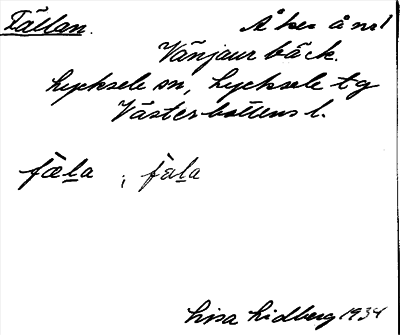 Fällan. Åker å nr 1
Vänjaurbäck.
Lycksele sn, Lycksele tg
Västerbottens l.
fæla ; fàla
Lisa Lidberg 1934